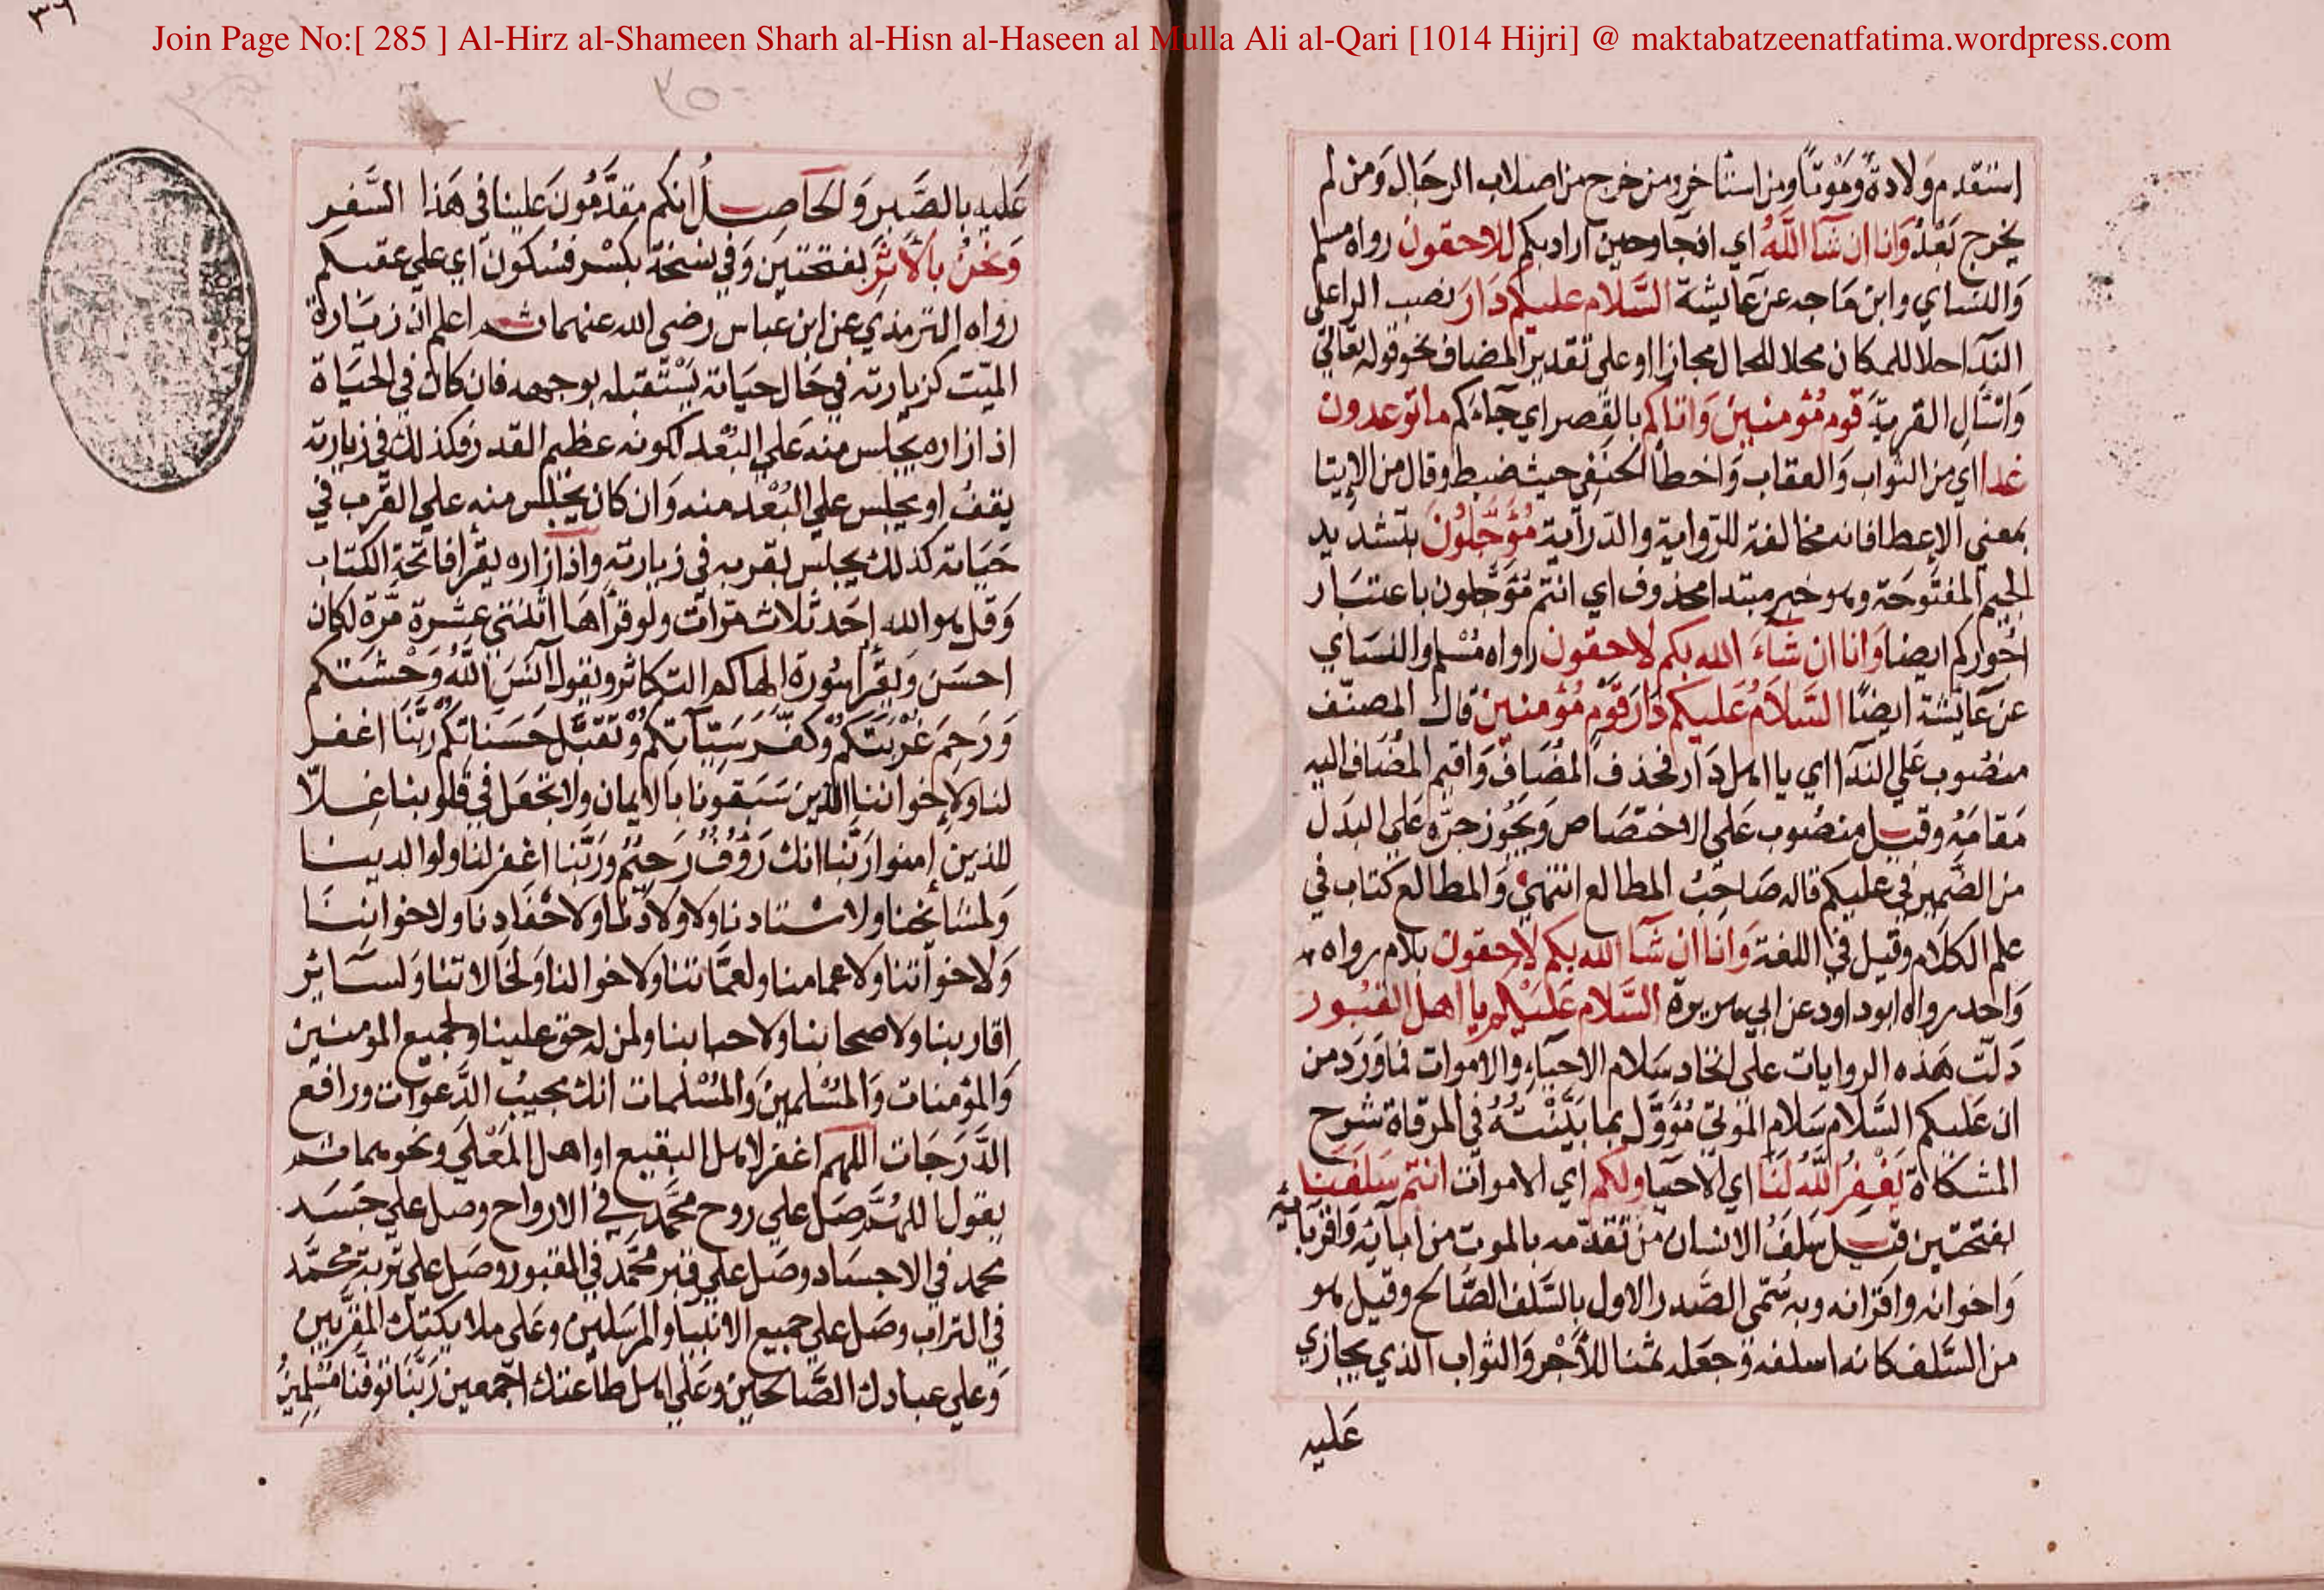 Join Page No:[ 285 ] Al-Hirz al-Shameen Sharh al-Hisn al-Haseen al Mulla Ali al-Qari [1014 Hijri] @ maktabatzeenatfatima.wordpress.com
استقدم ولادةً وموتًا ومن استاخر ومن خرج من اصلاب الرجال ومن لم
يخرج بَعْدُ وَانا ان شآ اللهُ اي وحين اراد بكم للاحقون رواه مسلم
والنساي وابن ماجه عن عايشة السَّلام عليكم دَارَ نصب الرا على
الندآ احلالا للمكان محلا للمحال مجازا او على تقدير المضاف نحو قوله تعالى
وَاسْأَلِ القرية قوم مُؤمنين وَاتاكم بالقصر اي جآءكم ما توعدون
غدا اي من الثواب وَالعقاب وَاخطأ الحنفي حيث ضبط وقال من الايتا
بمعني الاعطا فانه مخالفة للرواية والدراية مُؤَجَّلُونَ بتشديد
الجيم المفتوحة وهو خبر مبتدا محذوف اي انتم مُؤَجَّلون باعتبار
اجوركم ايضا وَانا ان شآءَ الله بكم لاحقون رواه مُسْلم والنساي
عن عَايشة ايضًا السَّلامُ عَليكم دَارَ قَوْمٍ مُؤمنين قال المصنّف
منصُوب عَلي الندآ اي يا اهل دَار فحذف المُضَافُ وَاقيم المُضَاف اليه
مَقامَهُ وقيل منصُوب عَلى الاختصَاص وَيَجُوز جرّه عَلى البدَل
من الضّمير في عليكم قاله صَاحِبُ المطالع انتهى وَالمطالع كتاب في
علم الكلام وقيل في اللغة وَانا ان شآ الله بكم لاحقون بلام رواه
وَاحد رواه ابو داود عن ابي هريرة السَّلام عَلَيْكم يا اهل القبُور
دَلّت هَذه الروايات على اتحاد سَلام الاحيآءِ والاموات فما وَرَد من
ان عَليكم السَّلام سَلام الموتي مُؤَوَّل بما بَيَّنْتُهُ في المرقاة شرح
المشكاة يَغْفِرُ اللهُ لَنَا اي الاحيا ولكم اي الاموات انتم سَلَفنا
بفتحتين قيل سَلَفُ الانسان من تقدّمه بالموت من ابآئه وَاقربائه
وَاخوانه واقرانه وبه سُمّي الصّدر الاول بالسَّلف الصّالح وقيل هو
من السَّلف كانه اسلفه وَجعله ثمنا للأَجْر وَالثواب الذي يجازي
عَليه
عَليه بالصَّبر وَالحَاصِل انكم مقدَّمُونَ عَلينا في هَذا السَّفر
وَنحْنُ بالأَثَرِ بفتحتين وَفي نسخة بكسْر فسُكُون اي علي عقبكم
رواه الترمذي عن ابن عباس رضي الله عنهما ثم اعلم ان زيَارة
الميّت كزيارته في حَال حيَاته يَسْتَقبله بوجهه فان كان في الحيَاة
اذا زاره يجلس منه عَلي البُعْد لكونه عظيم القدر فكذلك في زيارته
يقفُ او يجلس علي البُعْد منه وَان كان يجلس منه علي القُرب في
حَيَاته كذلك يجلس بقربه في زيارته واذا زاره يقرا فاتحة الكتاب
وَقل هو الله احَد ثلاث مرات ولو قرأهَا اثنتي عشرة مَّرة لكان
احسَن وَيقرأ سُورة الهاكم التكاثر ويقول آنسَ اللهُ وَحْشتكم
وَرَحِمَ غُرْبَتَكُم وَكفَّرَ سَيّآتكُم وَتَقبَّل حَسَناتكُم رَبَّنَا اغفر
لنا ولإخواننا الذين سَبَقونَا بالايمان ولا تجعَل في قلوبنا غِلاّ
للذين امنوا رَبَّنا انك رَؤُفٌ رَحِيْمٌ ورَبَّنا اغفر لنا ولوالدينا
وَلمشايخنا ولاستادنا ولاولادنا ولاحْفَادنا ولاخواننا
وَلاخواتنا ولاعمامنا ولعمَّاتنا ولاخوالنا وَلخالاتنا وَلسآئر
اقاربنا ولاصحابنا ولاحبابنا ولمن له حق علينا ولجميع المومنين
وَالمؤمنات وَالمُسْلمين وَالمُسْلمات انك مجيبُ الدَّعوات ورافع
الدَّرَجَات اللهم اغفر لاهل البقيع او اهل المَعْلى ونحوهما ثم
يقول اللهُمَّ صَل علي روح محمَّد في الارواح وصل علي جَسَد
محمد في الاجسَاد وصَل علي قبر محمَّد في القبور وصَل علي تُربة محمَّد
في التراب وصَل علي جميع الانبيا والمرسَلين وعَلى ملايكتك المقرَّبين
وَعلي عبادك الصَّالحين وعَلي اهل طاعتك اجمعين رَبَّنا توفّنا مُسْلِمِينَ